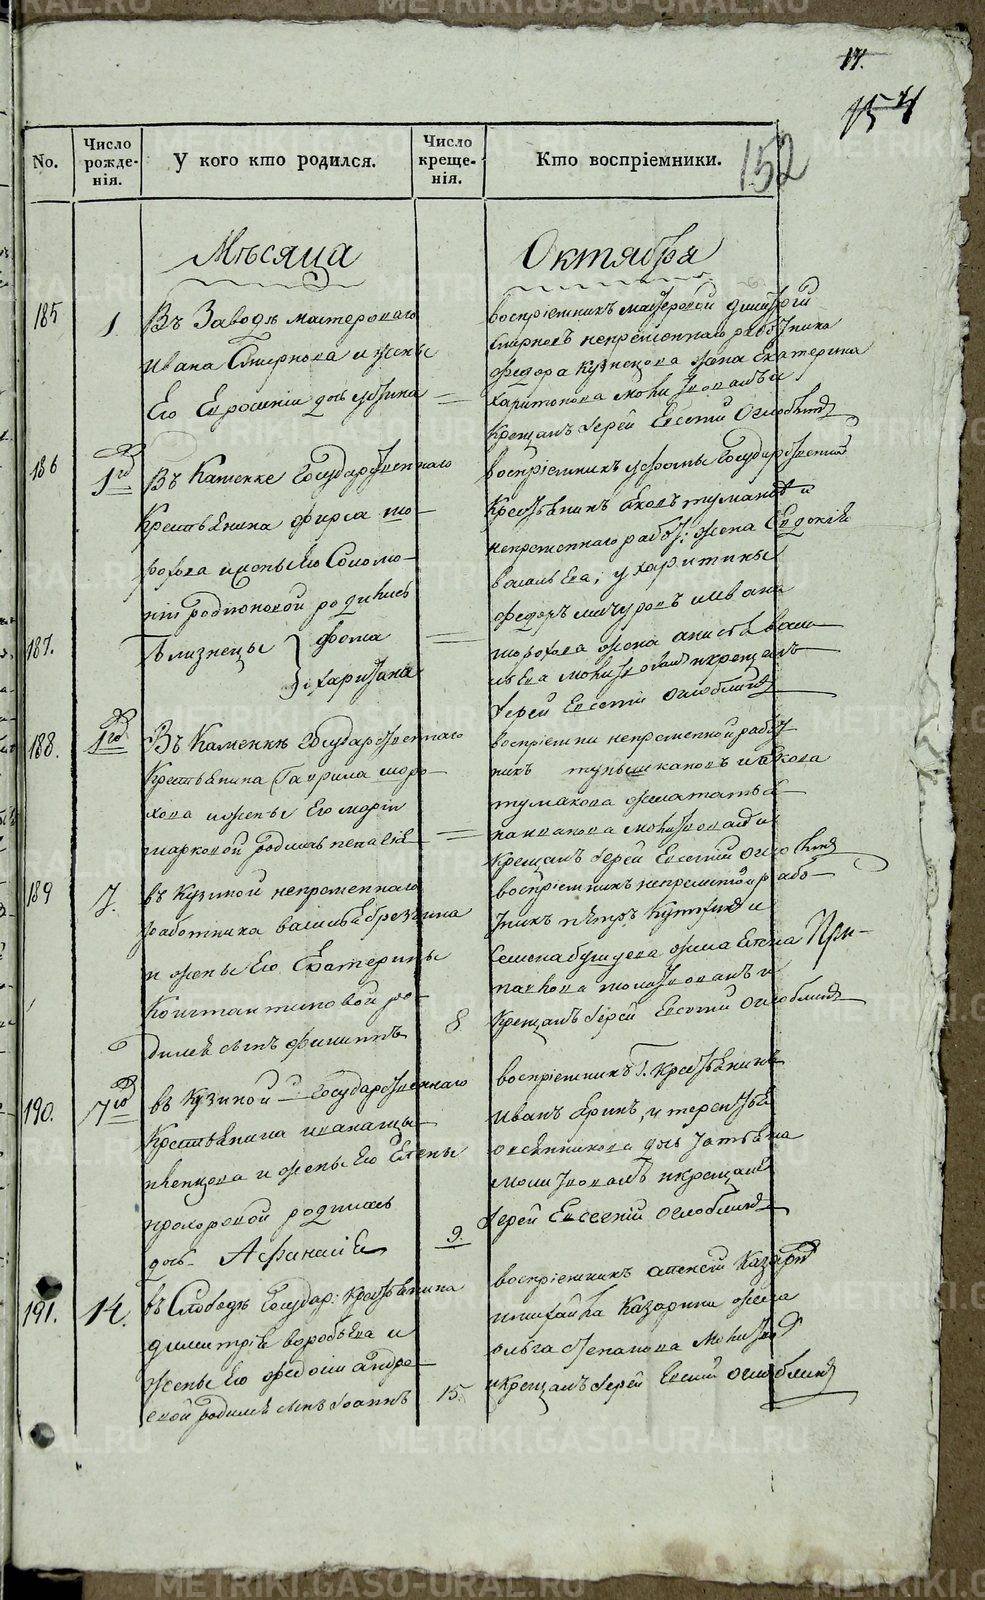 17.
154
152
No.
Число рожде-нія.
У кого кто родился.
Число креще-нія.
Кто воспріемники.
Мѣсяца
Октября
185
1
Въ Заводѣ мастероваго
Ивана Смирнова и жены
Его Евросиніи дочь Устина
воспріемникъ мастеровой Дмитрій
Смирновъ непремѣннаго работника
Федора Кузнецова жена Екатерина
Харитонова молитвовалъ и
Крещалъ Іерей Евсевій Оглоблинъ
186
1го
Въ Каменке Государственнаго
Крестьянина Фирса шо-
рохова и жены Его Соломо-
ніи Родионовой родились
187.
близнецы
Фома
Харитина
воспріемникъ у Фомы Государственный
Крестьянинъ Яковъ тумановъ и
непременнаго работ: жена Евдокія
васильева, у харитины
Федоръ мичуровъ и Ивана
шорохова жена анисья васи-
льева молитвовалъ и крещалъ
Іерей Евсевій Оглоблинъ
188.
1го
Въ Каменкѣ Государственнаго
Крестьянина Гаврила шоро-
хова и жены Его маріи
марковой родилась пелагея
воспріемники непременной работ
никъ и Якова
тумакова жена татья-
на Иванова молитвовалъ и
Крещалъ Іерей Евсевій Оглоблинъ
189
7.
въ Кузиной непременнаго
работника василья березина
и жены Его Екатерины
Констант иновой ро-
дился сынъ Филиппъ
8
воспріемникъ непременной рабо-
тникъ петръ и
Семена жена Елена При-
пачкова молитвовалъ и
Крещалъ Іерей Евсевій Оглоблинъ
190.
7го
въ Кузиной Государственнаго
Крестьянина Ивана пы-
пченкова и жены Его Елены
прохоровой родилась
дочь Афанасія
9.
воспріемникъ Г. Крестьянинъ
Иванъ Яринъ, и терентья
овсянникова дочь татьяна
молитвовалъ и крещалъ
Іерей Евсевій Оглоблинъ
191.
14.
въ Слободѣ Государ: Крестьянина
димитрія воробьева и
жены Его федосіи андре-
евой родился сынъ Іоаннъ
15.
воспріемникъ алексій Казаринъ
и михайла Казарина жена
ольга степанова молитвов
и Крещалъ Іерей Евсевій Оглоблинъ
METRIKI.GASO-URAL.RU